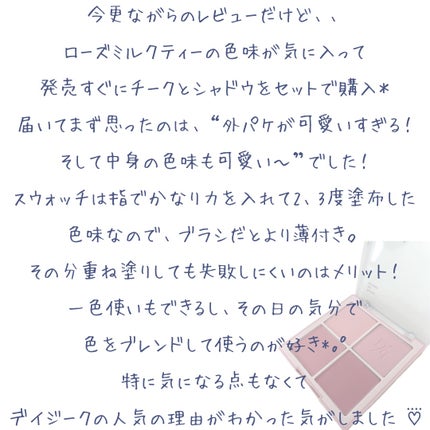 今更ながらのレビューだけど、、
ローズミルクティーの色味が気に入って
発売すぐにチークとシャドウをセットで購入*
届いてまず思ったのは、“外パケが可愛いすぎる！
そして中身の色味も可愛い〜”でした！
スウォッチは指でかなり力を入れて2、3度塗布した
色味なので、ブラシだとより薄付き。
その分重ね塗りしても失敗しにくいのはメリット！
一色使いもできるし、その日の気分で
色をブレンドして使うのが好き*。°
特に気になる点もなくて
デイジークの人気の理由がわかった気がしました ♡